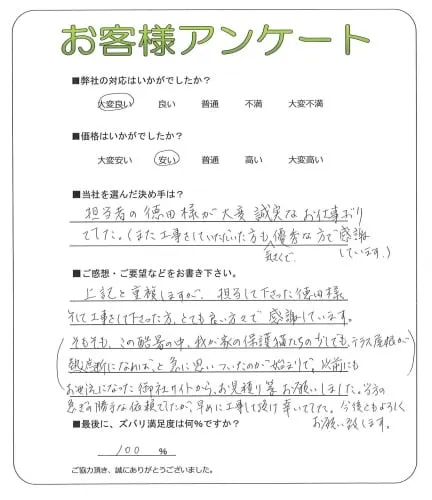 お客様アンケート
■弊社の対応はいかがでしたか?
大変良い 良い 普通 不満 大変不満
■価格はいかがでしたか?
大変安い 安い 普通 高い 大変高い
■当社を選んだ決め手は?
担当者の徳田様が大変誠実なお仕事ぶり
でした。(また工事をしていただいた方も、優秀な方で感謝
気さくで、 しています。)
■ご感想・ご要望などをお書き下さい。
上記と重複しますが、担当して下さった徳田様
そして工事をして下さった方、とても良い方々で感謝しています。
そもそも、この酷暑の中、我が家の保護猫たちの少しでも、テラス屋根が
熱遮断になれば、と急に思いついたのが始まりで、以前にも
お世話になった御社サイトから、お見積り等お願いしました。当方の
急ぎの勝手な依頼でしたが、早めに工事して頂け幸いでした。今後ともよろしく
お願い致します。
■最後に、ズバリ満足度は何%ですか?
100 %
ご協力頂き、誠にありがとうございました。